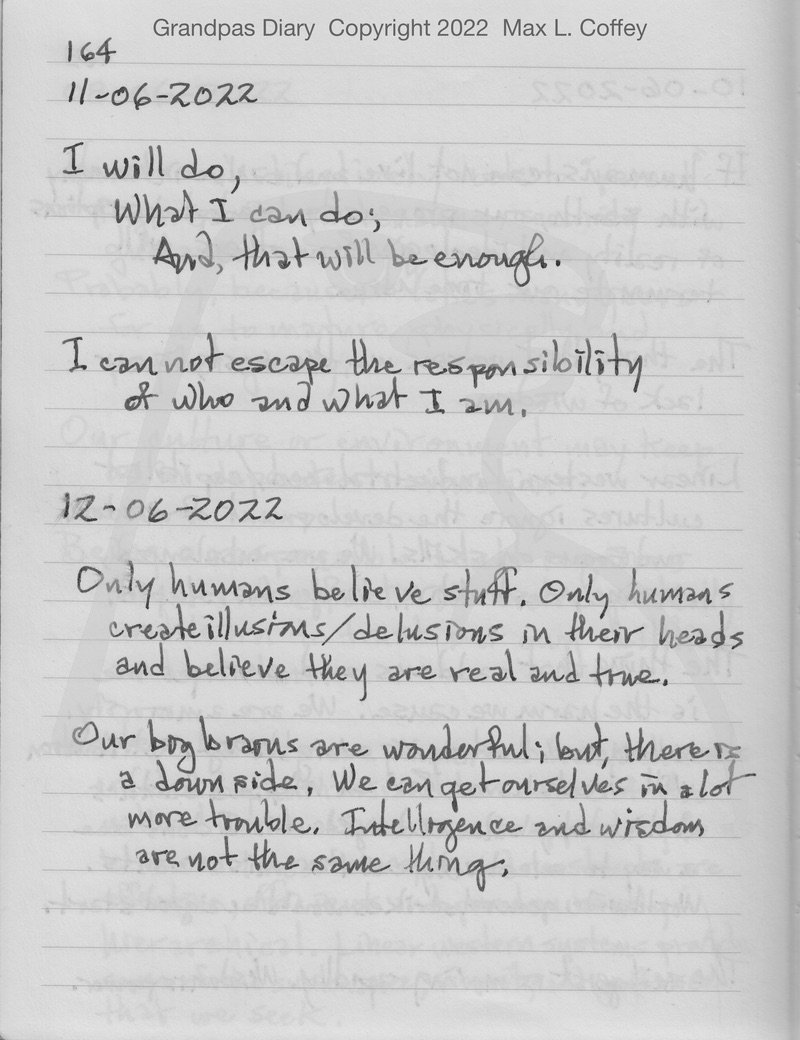 Grandpas Diary Copyright 2022 Max L. Coffey
164
11-06-2022
I will do,
What I can do;
And, that will be enough.
I can not escape the responsibility
of who and what I am.
12-06-2022
Only humans believe stuff. Only humans
create illusions/delusions in their heads
and believe they are real and true.
Our big brains are wonderful; but, there is
a down side. We can get ourselves in a lot
more trouble. Intelligence and wisdom
are not the same thing.